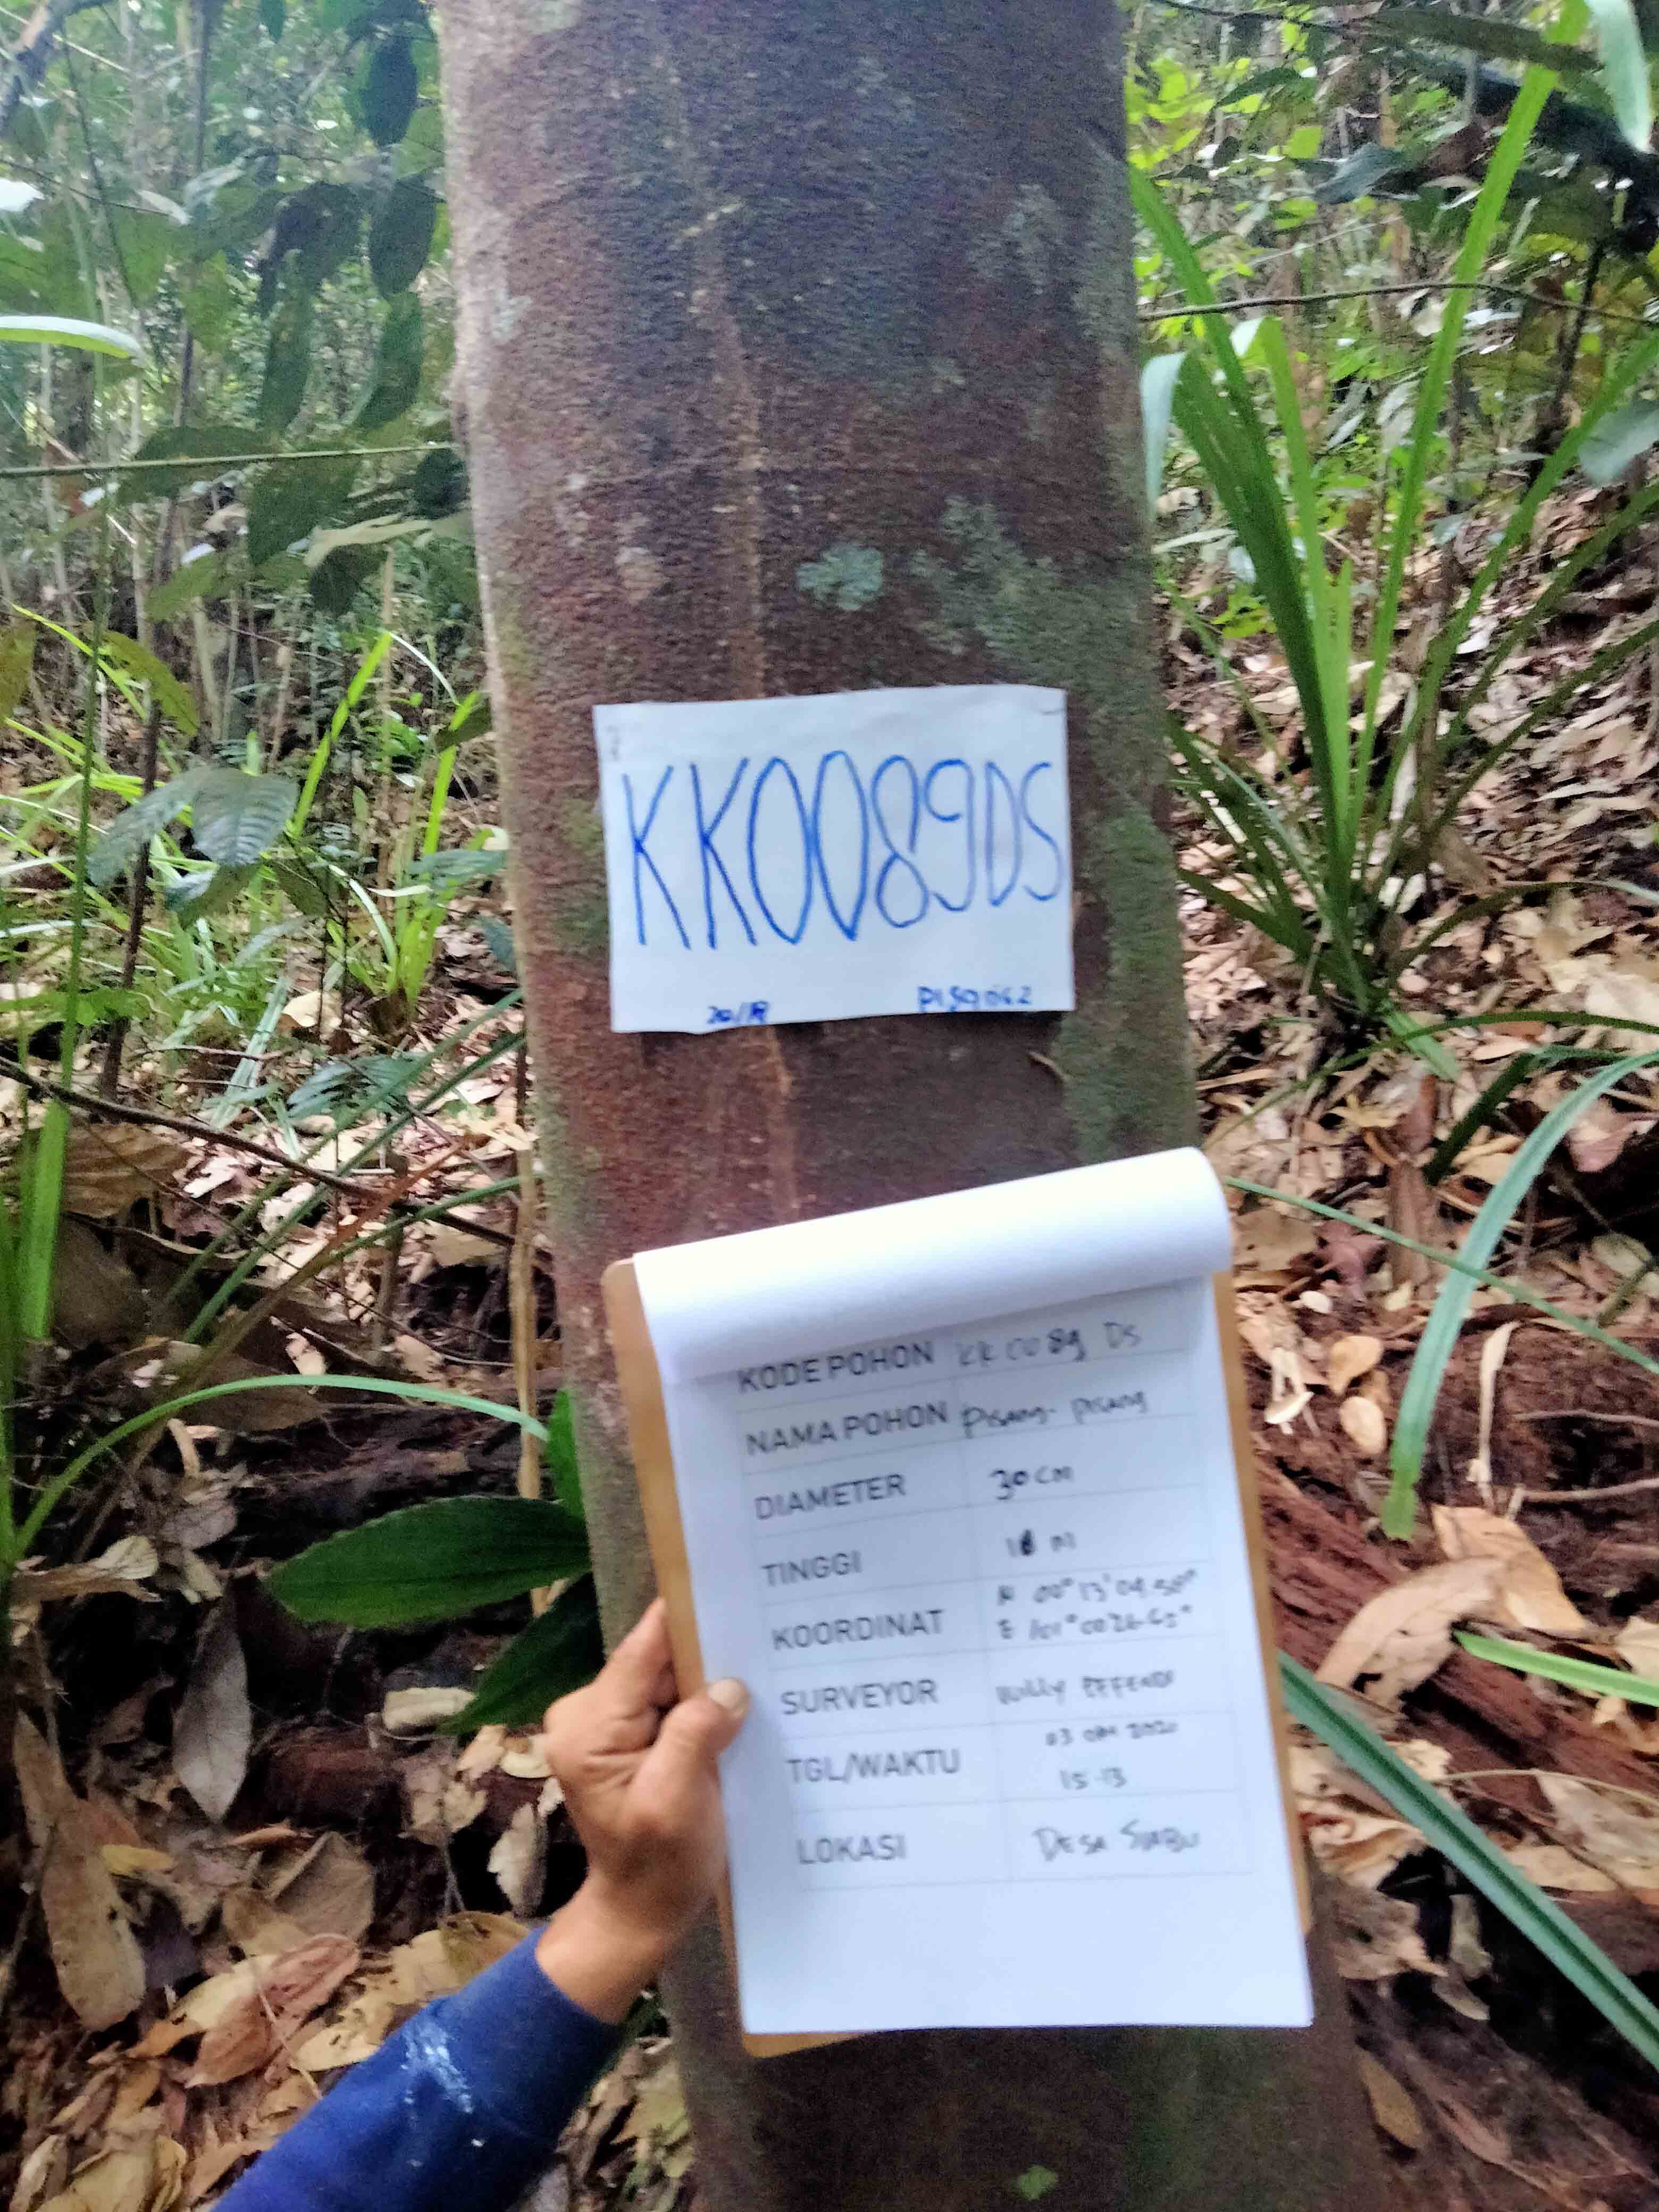 KK0089DS
KODE POHON KK 0089 DS
NAMA POHON Pisang-pisang
DIAMETER 30 cm
TINGGI m
KOORDINAT N 00° 13' 04.50"
E 101° 00
SURVEYOR Willy EFFENDI
TGL/WAKTU 03 2020
15.13
LOKASI DESA